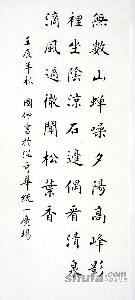 無數山蟬噪夕陽高峰影
裡坐陰涼石邊偶看清泉
滴風過微聞松葉香
壬辰年秋 國